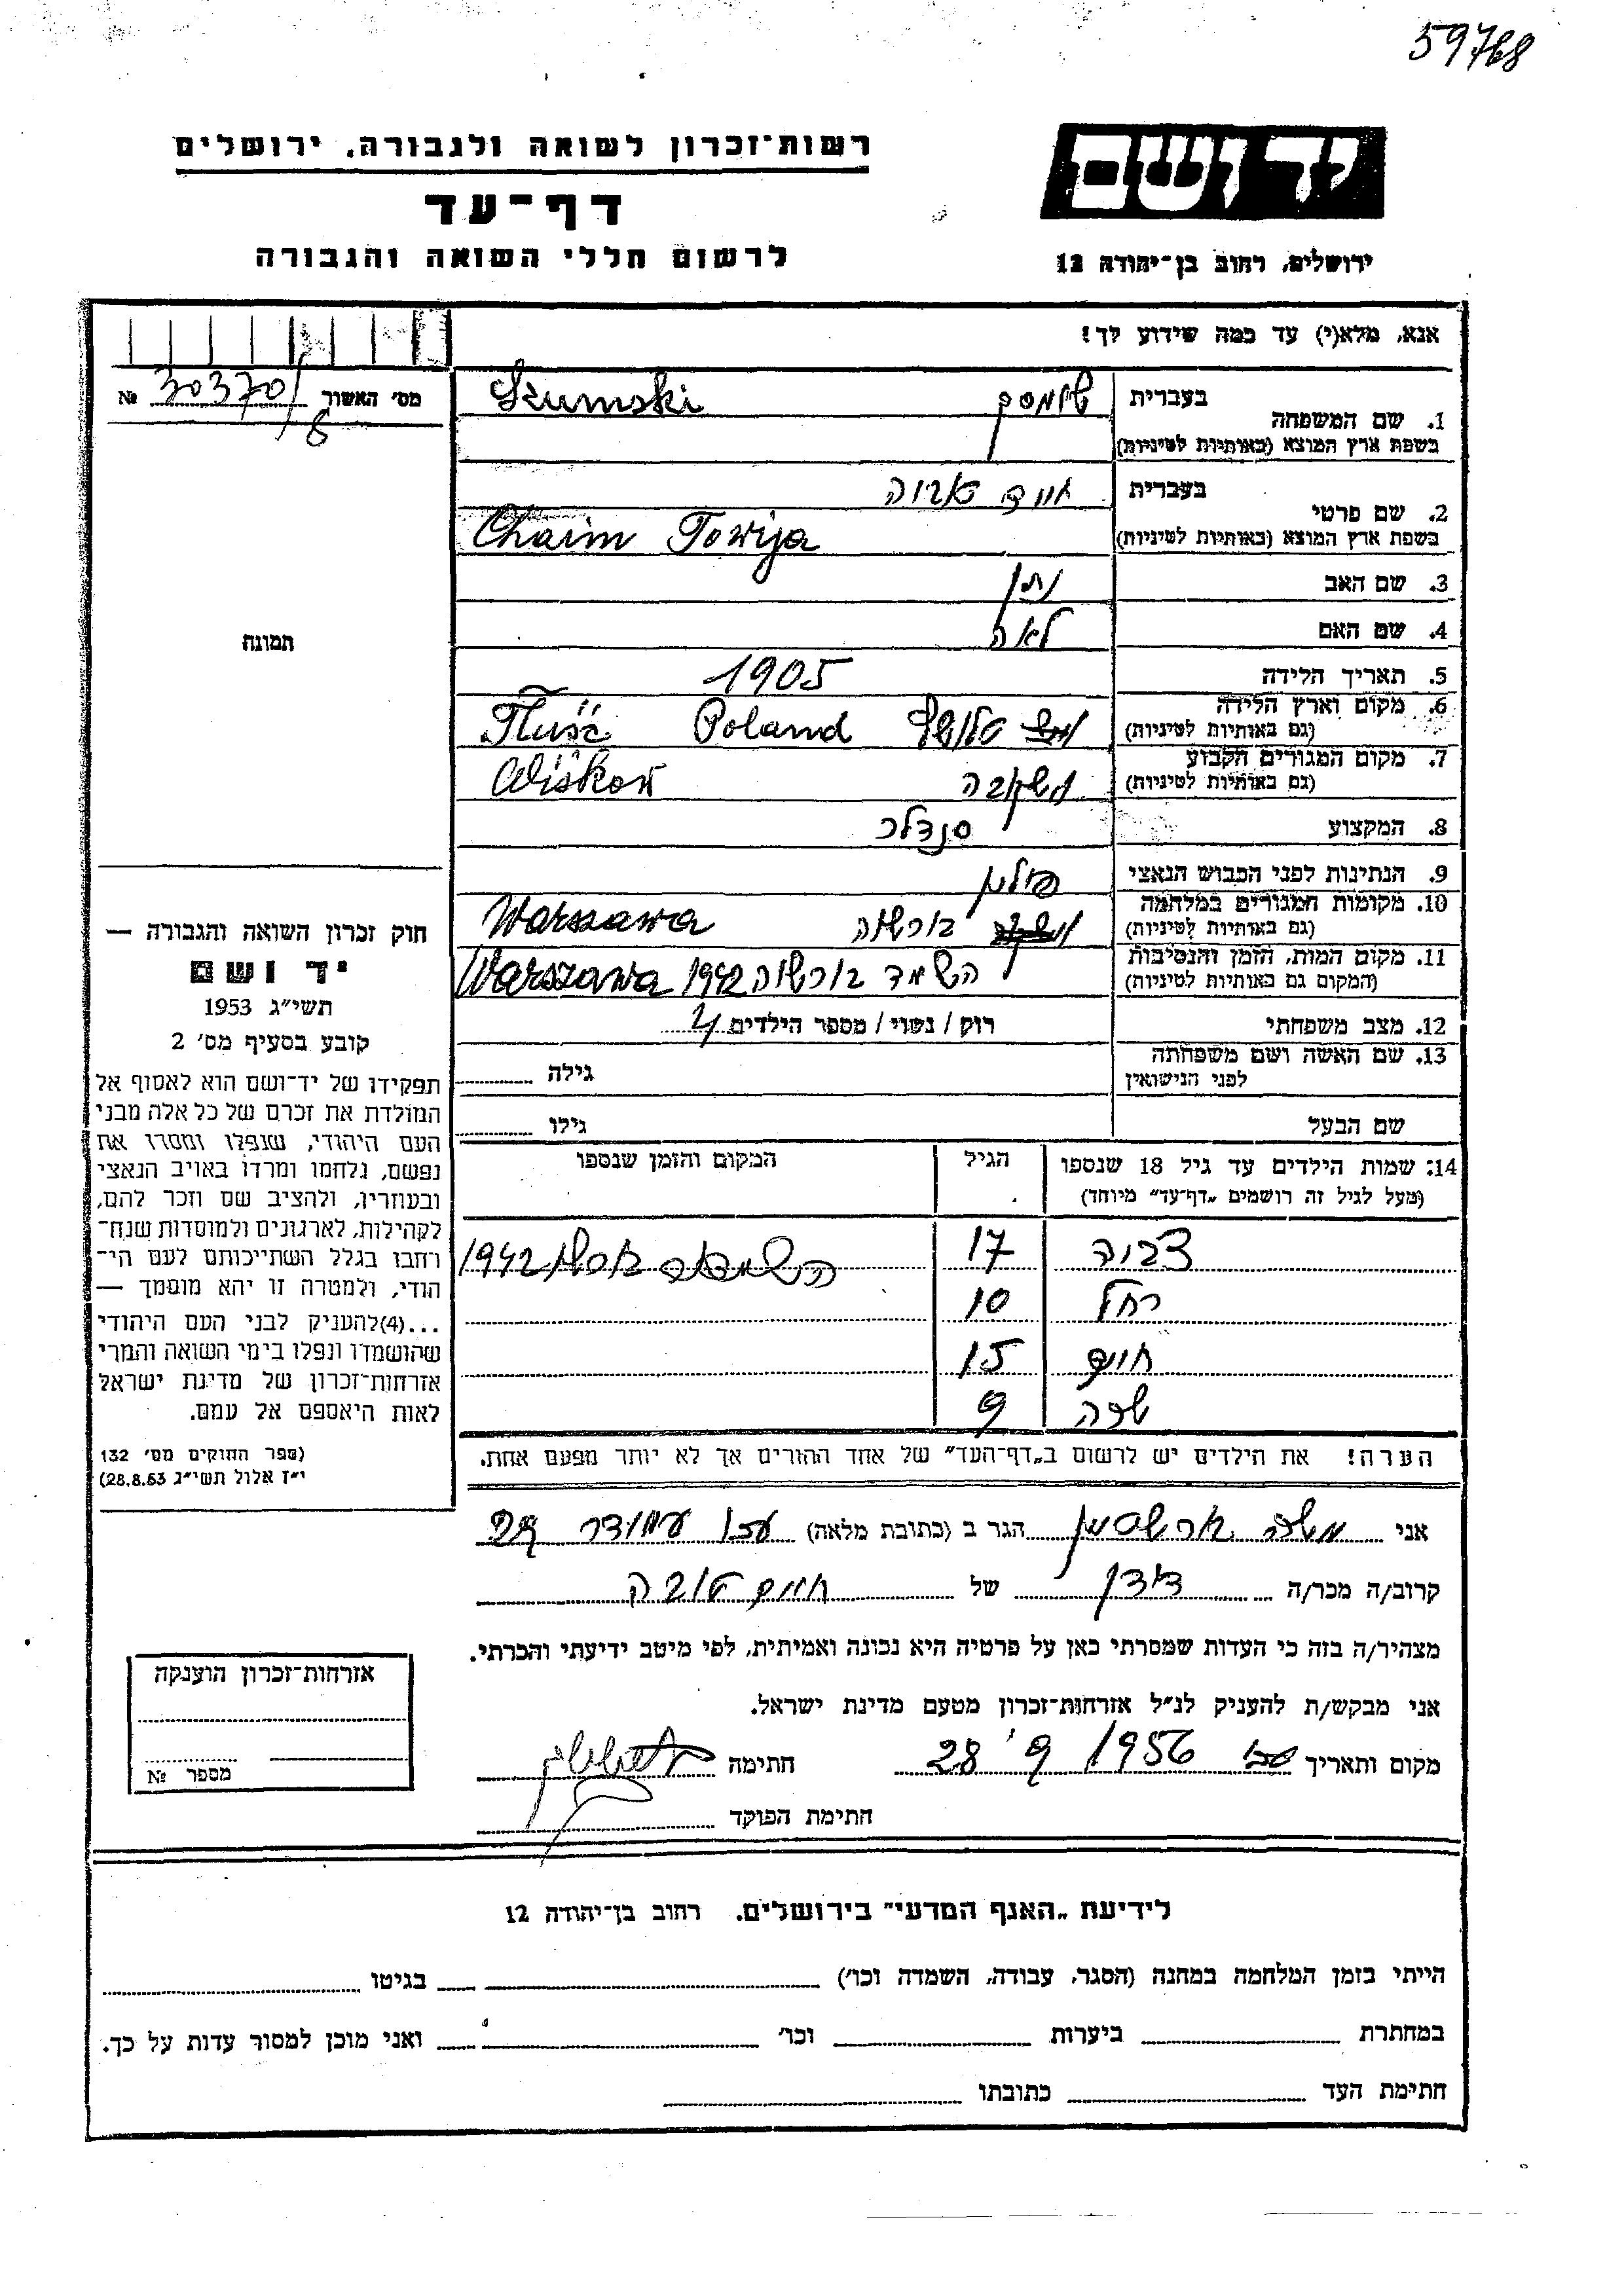 59768
רשות־זכרון לשואה ולגבורה, ירושלים
דף־עד
לרשום חללי השואה והגבורה
יד ושם
ירושלים, רחוב בן־יהודה 12
אנא, מלא(י) עד כמה שידוע לך!
מס' האשור 30370/8 №
1. שם המשפחה
בעברית שומסקי
Szumski
בשפת ארץ המוצא (באותיות לטיניות)
2. שם פרטי
בעברית חיים טוביה
בשפת ארץ המוצא (באותיות לטיניות) Chaim Towija
3. שם האב נתן
4. שם האם לאה
5. תאריך הלידה 1905
6. מקום וארץ הלידה
(גם באותיות לטיניות) Tłuść Poland
7. מקום המגורים הקבוע
(גם באותיות לטיניות) Wiśkow
8. המקצוע סנדלר
9. הנתינות לפני הכבוש הנאצי פולין
10. מקומות המגורים במלחמה
(גם באותיות לטיניות) בורשה Warszawa
11. מקום המות, הזמן והנסיבות
(המקום גם באותיות לטיניות) השמד בורשה 1942 Warszawa
12. מצב משפחתי רוק / נשוי / מספר הילדים 4
13. שם האשה ושם משפחתה
לפני הנישואין גילה
שם הבעל גילו
14. שמות הילדים עד גיל 18 שנספו הגיל המקום והזמן שנספו
(מעל לגיל זה רושמים „דף־עד" מיוחד)
17 1942
רחל 10
חיים 15
9
הערה! את הילדים יש לרשום ב„דף־העד" של אחד ההורים אך לא יותר מפעם אחת.
תמונה
חוק זכרון השואה והגבורה —
יד ושם
תשי"ג 1953
קובע בסעיף מס' 2
תפקידו של יד־ושם הוא לאסוף אל
המולדת את זכרם של כל אלה מבני
העם היהודי, שנפלו ומסרו את
נפשם, נלחמו ומרדו באויב הנאצי
ובעוזריו, ולהציב שם וזכר להם,
לקהילות, לארגונים ולמוסדות שנח־
רבו בגלל השתייכותם לעם הי־
הודי, ולמטרה זו יהא מוסמך —
...(4) להעניק לבני העם היהודי
שהושמדו ונפלו בימי השואה והמרי
אזרחות־זכרון של מדינת ישראל
לאות היאספם אל עמם.
(ספר החוקים מס' 132
י"ז אלול תשי"ג 28.8.53)
אני משה הגר ב (כתובת מלאה) 29
קרוב/ה מכר/ה דודן של חיים טוביה
מצהיר/ה בזה כי העדות שמסרתי כאן על פרטיה היא נכונה ואמיתית, לפי מיטב ידיעתי והכרתי.
אני מבקש/ת להעניק לנ"ל אזרחות־זכרון מטעם מדינת ישראל.
מקום ותאריך 28 9' 1956 חתימה
חתימת הפוקד
אזרחות־זכרון הוענקה
מספר №
לידיעת „האגף המדעי" בירושלים, רחוב בן־יהודה 12
הייתי בזמן המלחמה במחנה (הסגר, עבודה, השמדה וכו') בגיטו
במחתרת ביערות וכו' ואני מוכן למסור עדות על כך.
חתימת העד כתובתו